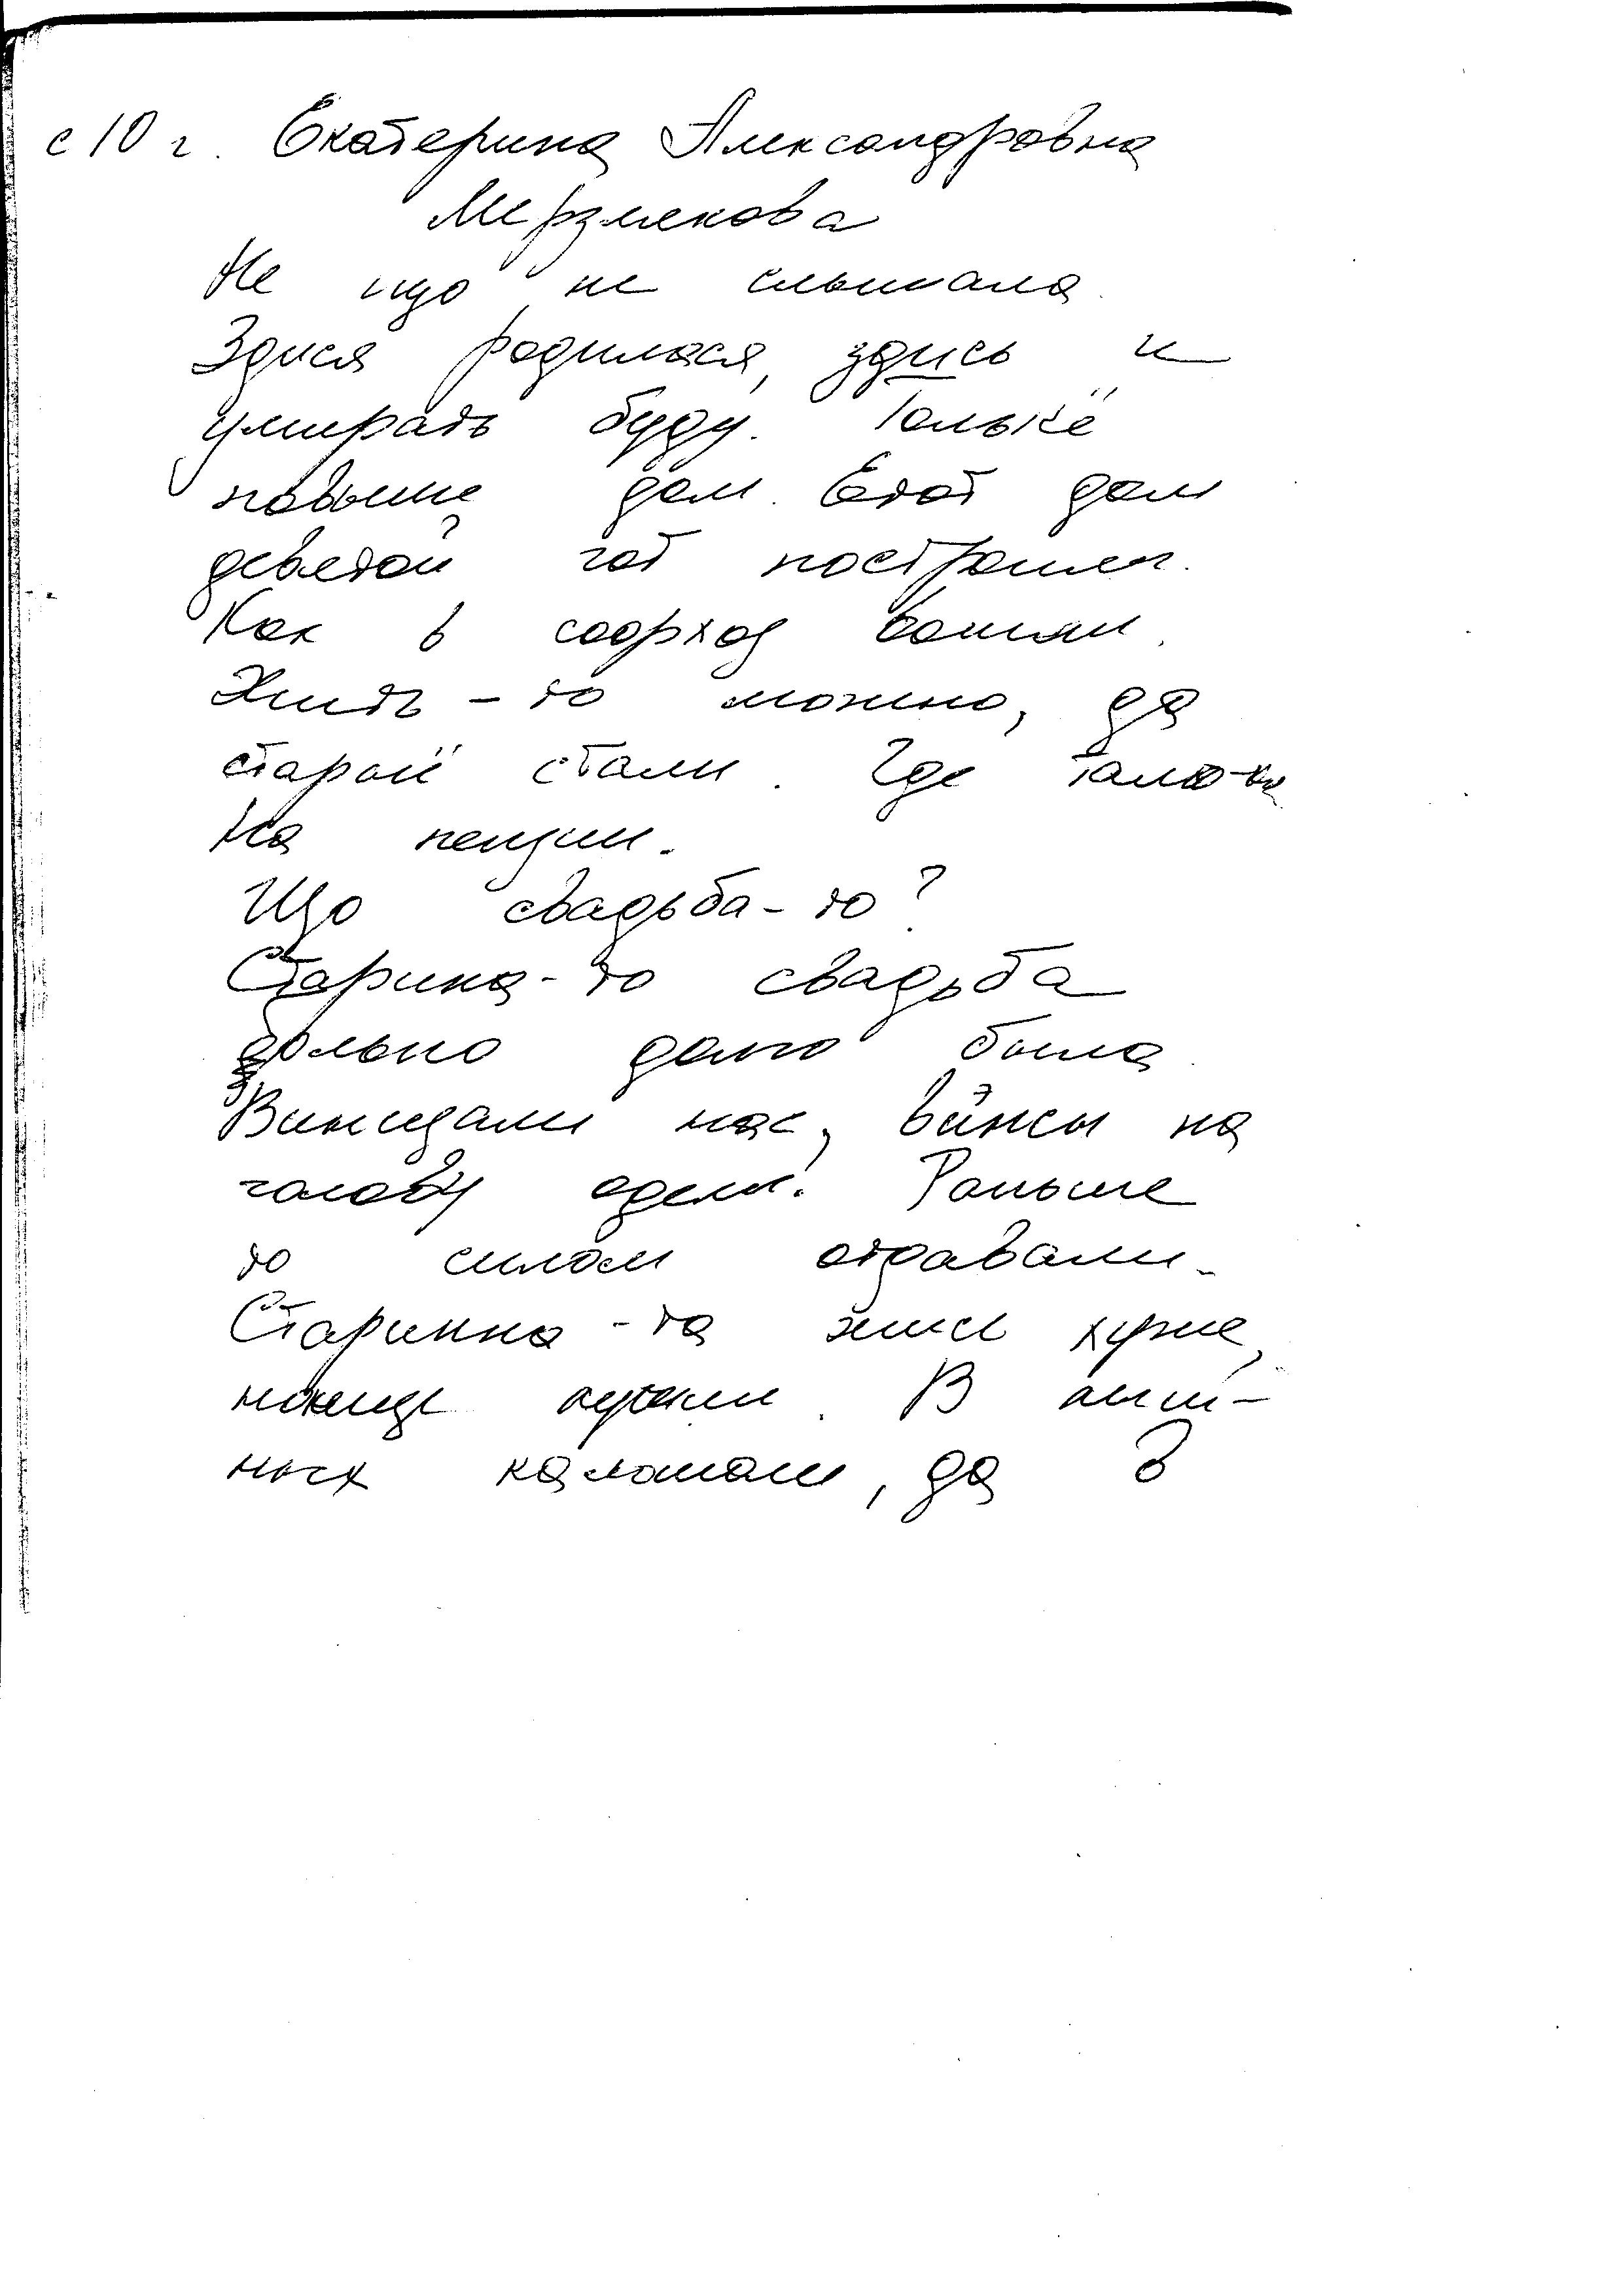 с 10 г. Екатерина Александровна
Мерзлекова
Не що не слышала.
Здися родилася, здись и
умирать буду. Толькё
повыше дом. Етот дом
деветой год построили.
Как в совхоз вошли.
Жить-то можно, да
старой стали. Где
На пенции.
Що свадьба-то?
Старина-то свадьба
дольно долго была.
Винцали нас, винсы на
голову одели. Раньше
то силом отдавали.
Старинно-та жись хуже,
В лыт-
ных калошах, да в